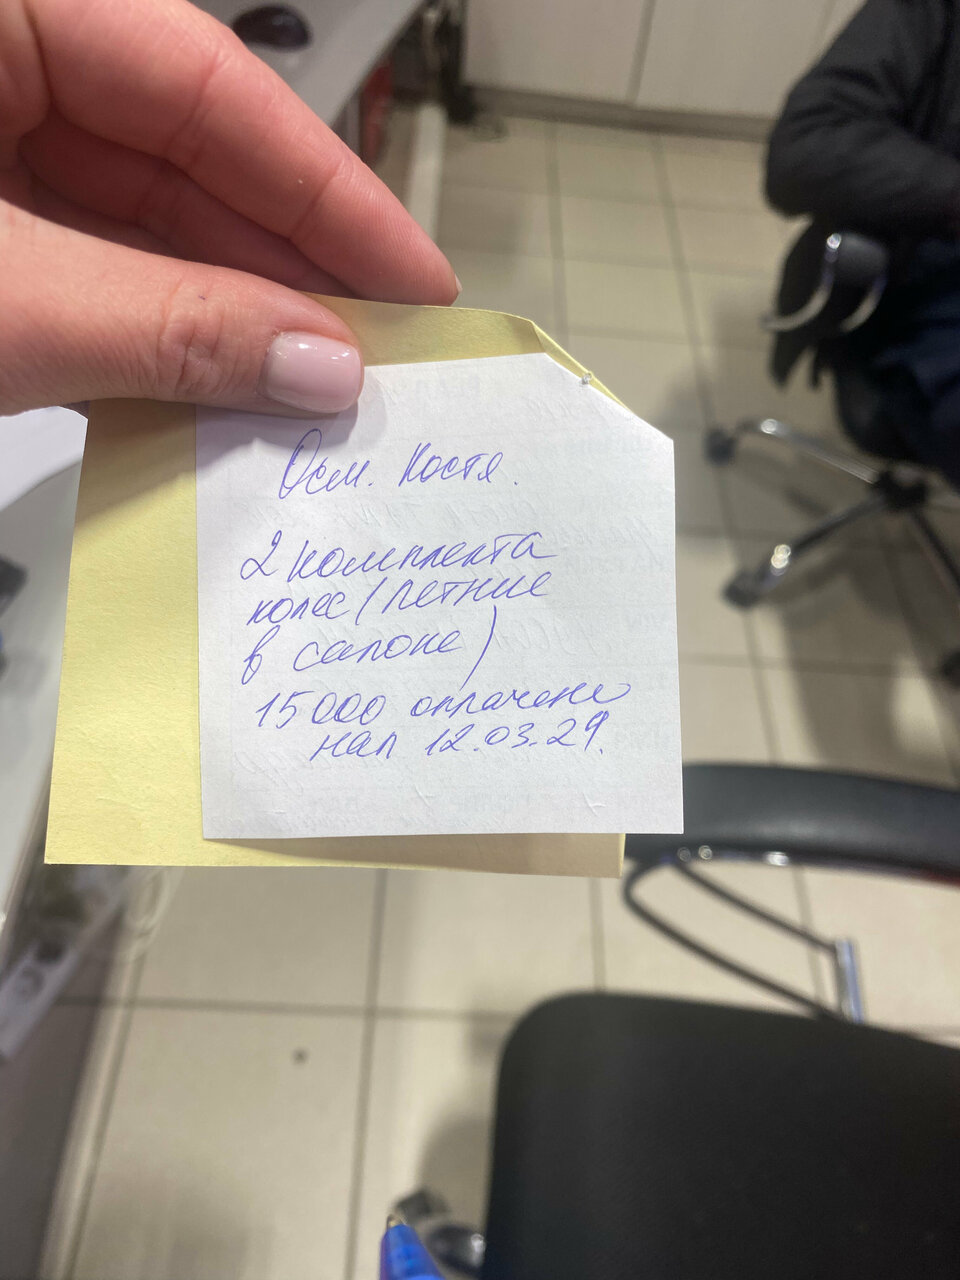 Осм. Костя.
2 комплекта
колес (летние
в салоне)
15000 оплачено
нал 12.03.24.